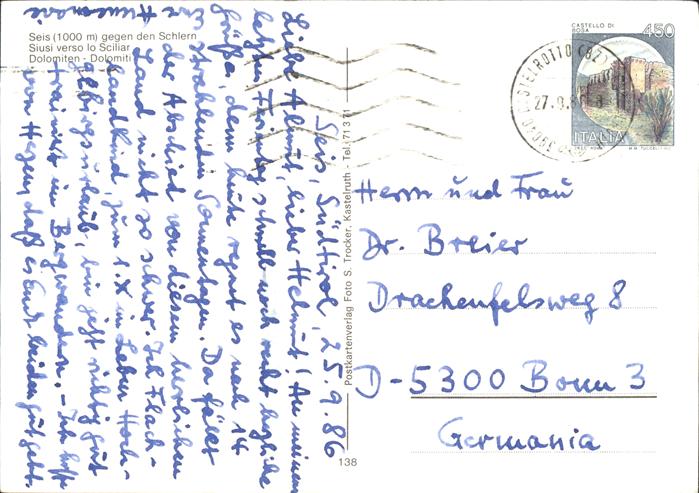 Seis (1000 m) gegen den Schlern
Siusi verso lo Sciliar
Dolomiten - Dolomiti
Seis, Südtirol, 25.9.86
Liebe Almut, lieber Helmut! An meinem
letzten Freitag schnell noch recht herzliche
Grüße, denn heute regnet es nach 14
strahlenden Sonnentagen. Da fällt
der Abschied von diesem herrlichen
Land nicht so schwer. Ich Flach-
landkind, zum 1.X im Leben Hoch-
gebirgsurlaub, bin jetzt richtig gut
trainiert im Bergwandern. - Ich hoffe
von Herzen, daß es Euch beiden gut geht.
Eure
Postkartenverlag Foto S. Trocker, Kastelruth - Tel. 71371
138
CASTELLO DI
BOSA
450
ITALIA
CASTELROTTO (BZ)
27.9.86
Herrn und Frau
Dr. Breier
Drachenfelsweg 8
D-5300 Bonn 3
Germania